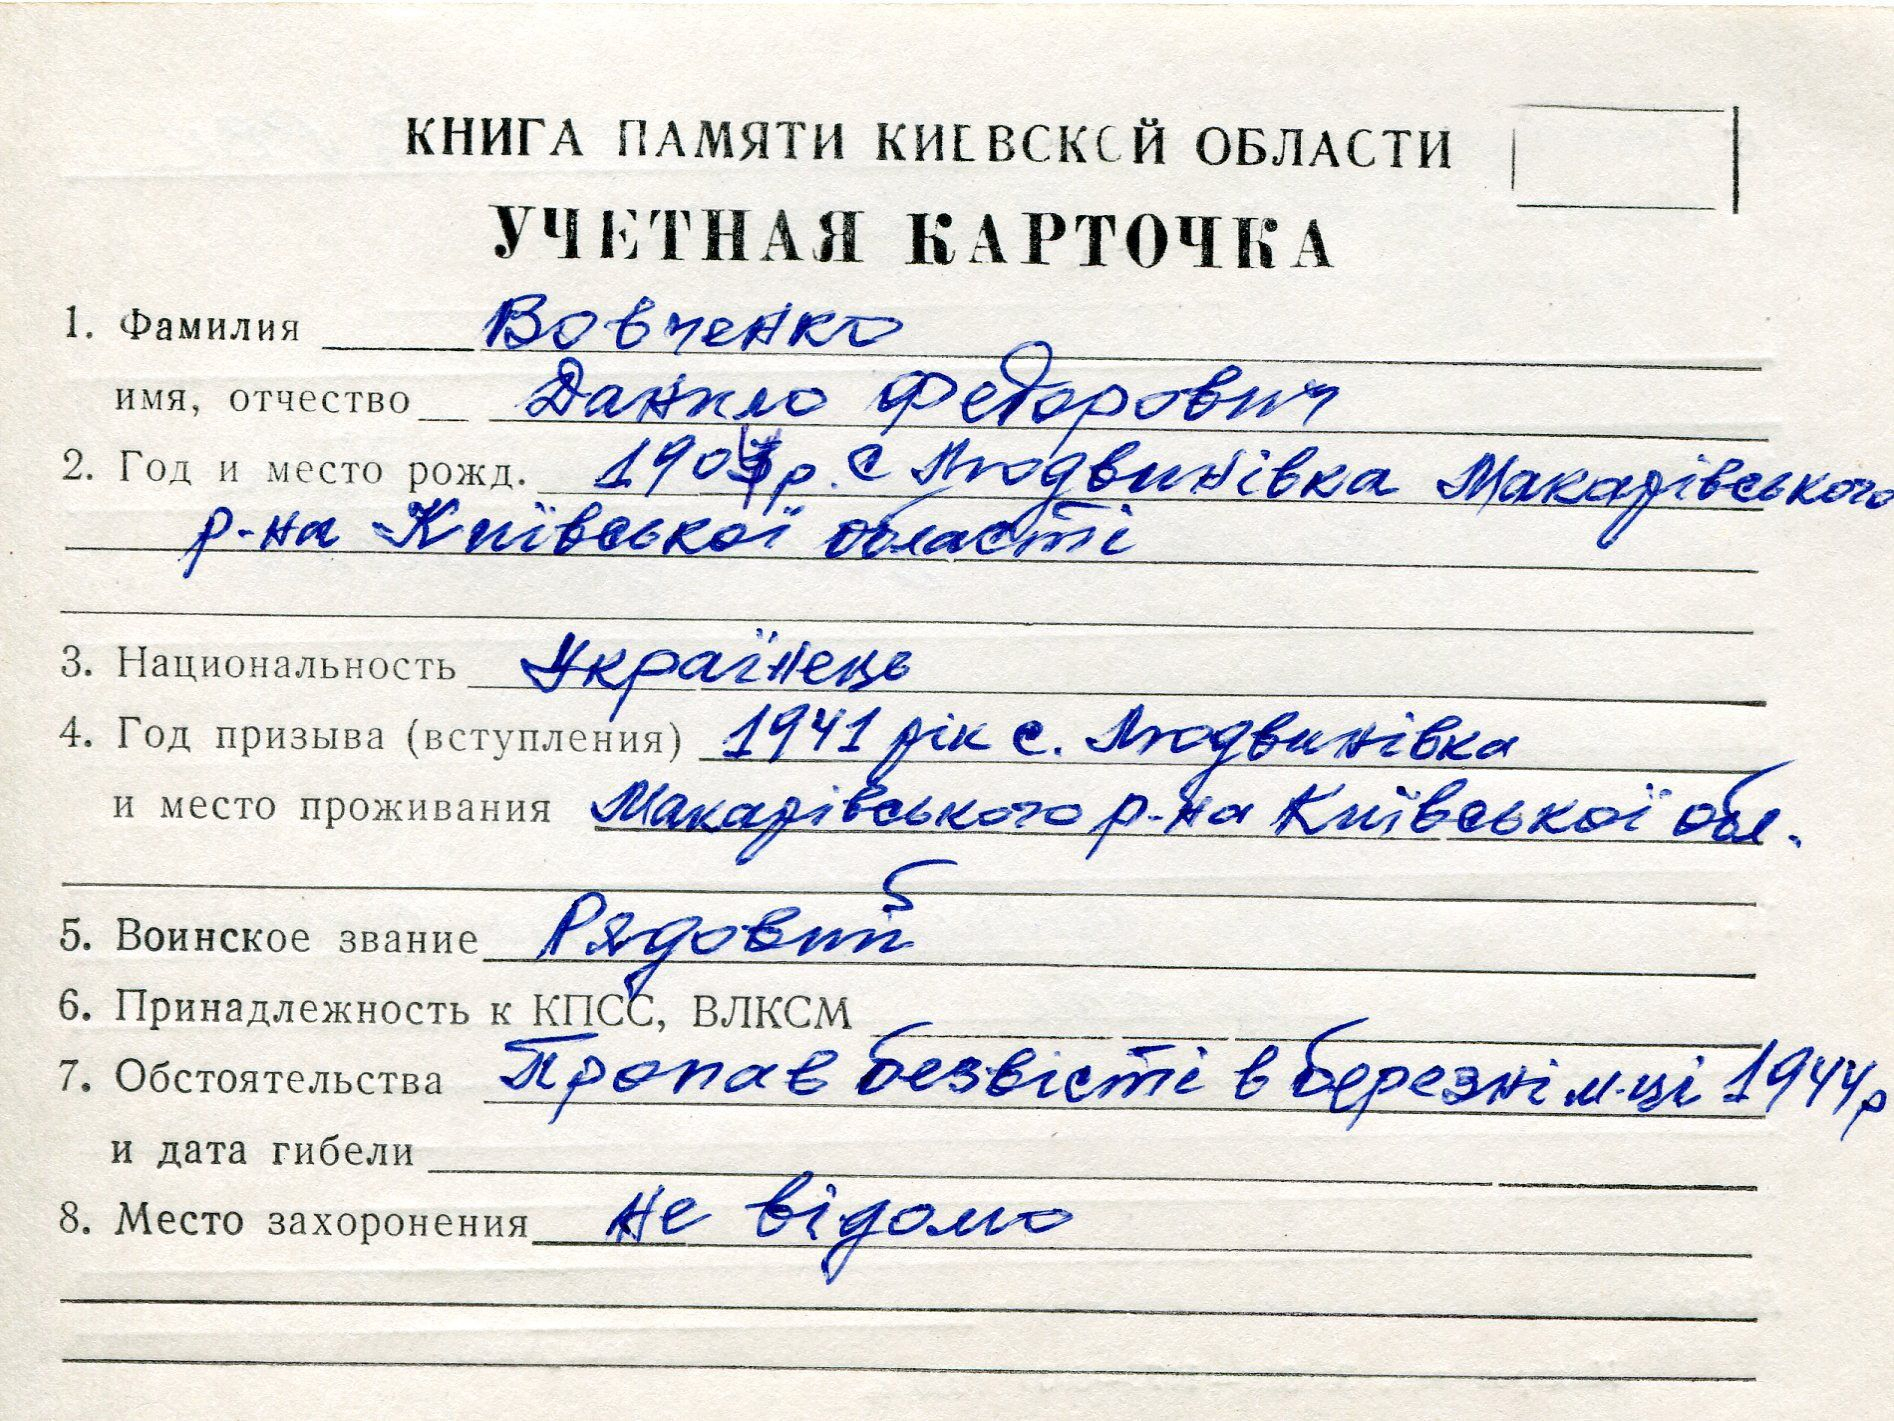 КНИГА ПАМЯТИ КИЕВСКОЙ ОБЛАСТИ
УЧЕТНАЯ КАРТОЧКА
1. Фамилия Вовченко
имя, отчество Данило Федорович
2. Год и место рожд. р. с Людвинівка Макарівського
р-на Київської області
3. Национальность Українець
4. Год призыва (вступления) 1941 рік с. Людвинівка
и место проживания Макарівського р-на Київської обл.
5. Воинское звание Рядовий
6. Принадлежность к КПСС, ВЛКСМ
7. Обстоятельства Пропав безвісті в березні м-ці 1944р
и дата гибели
8. Место захоронения не відомо